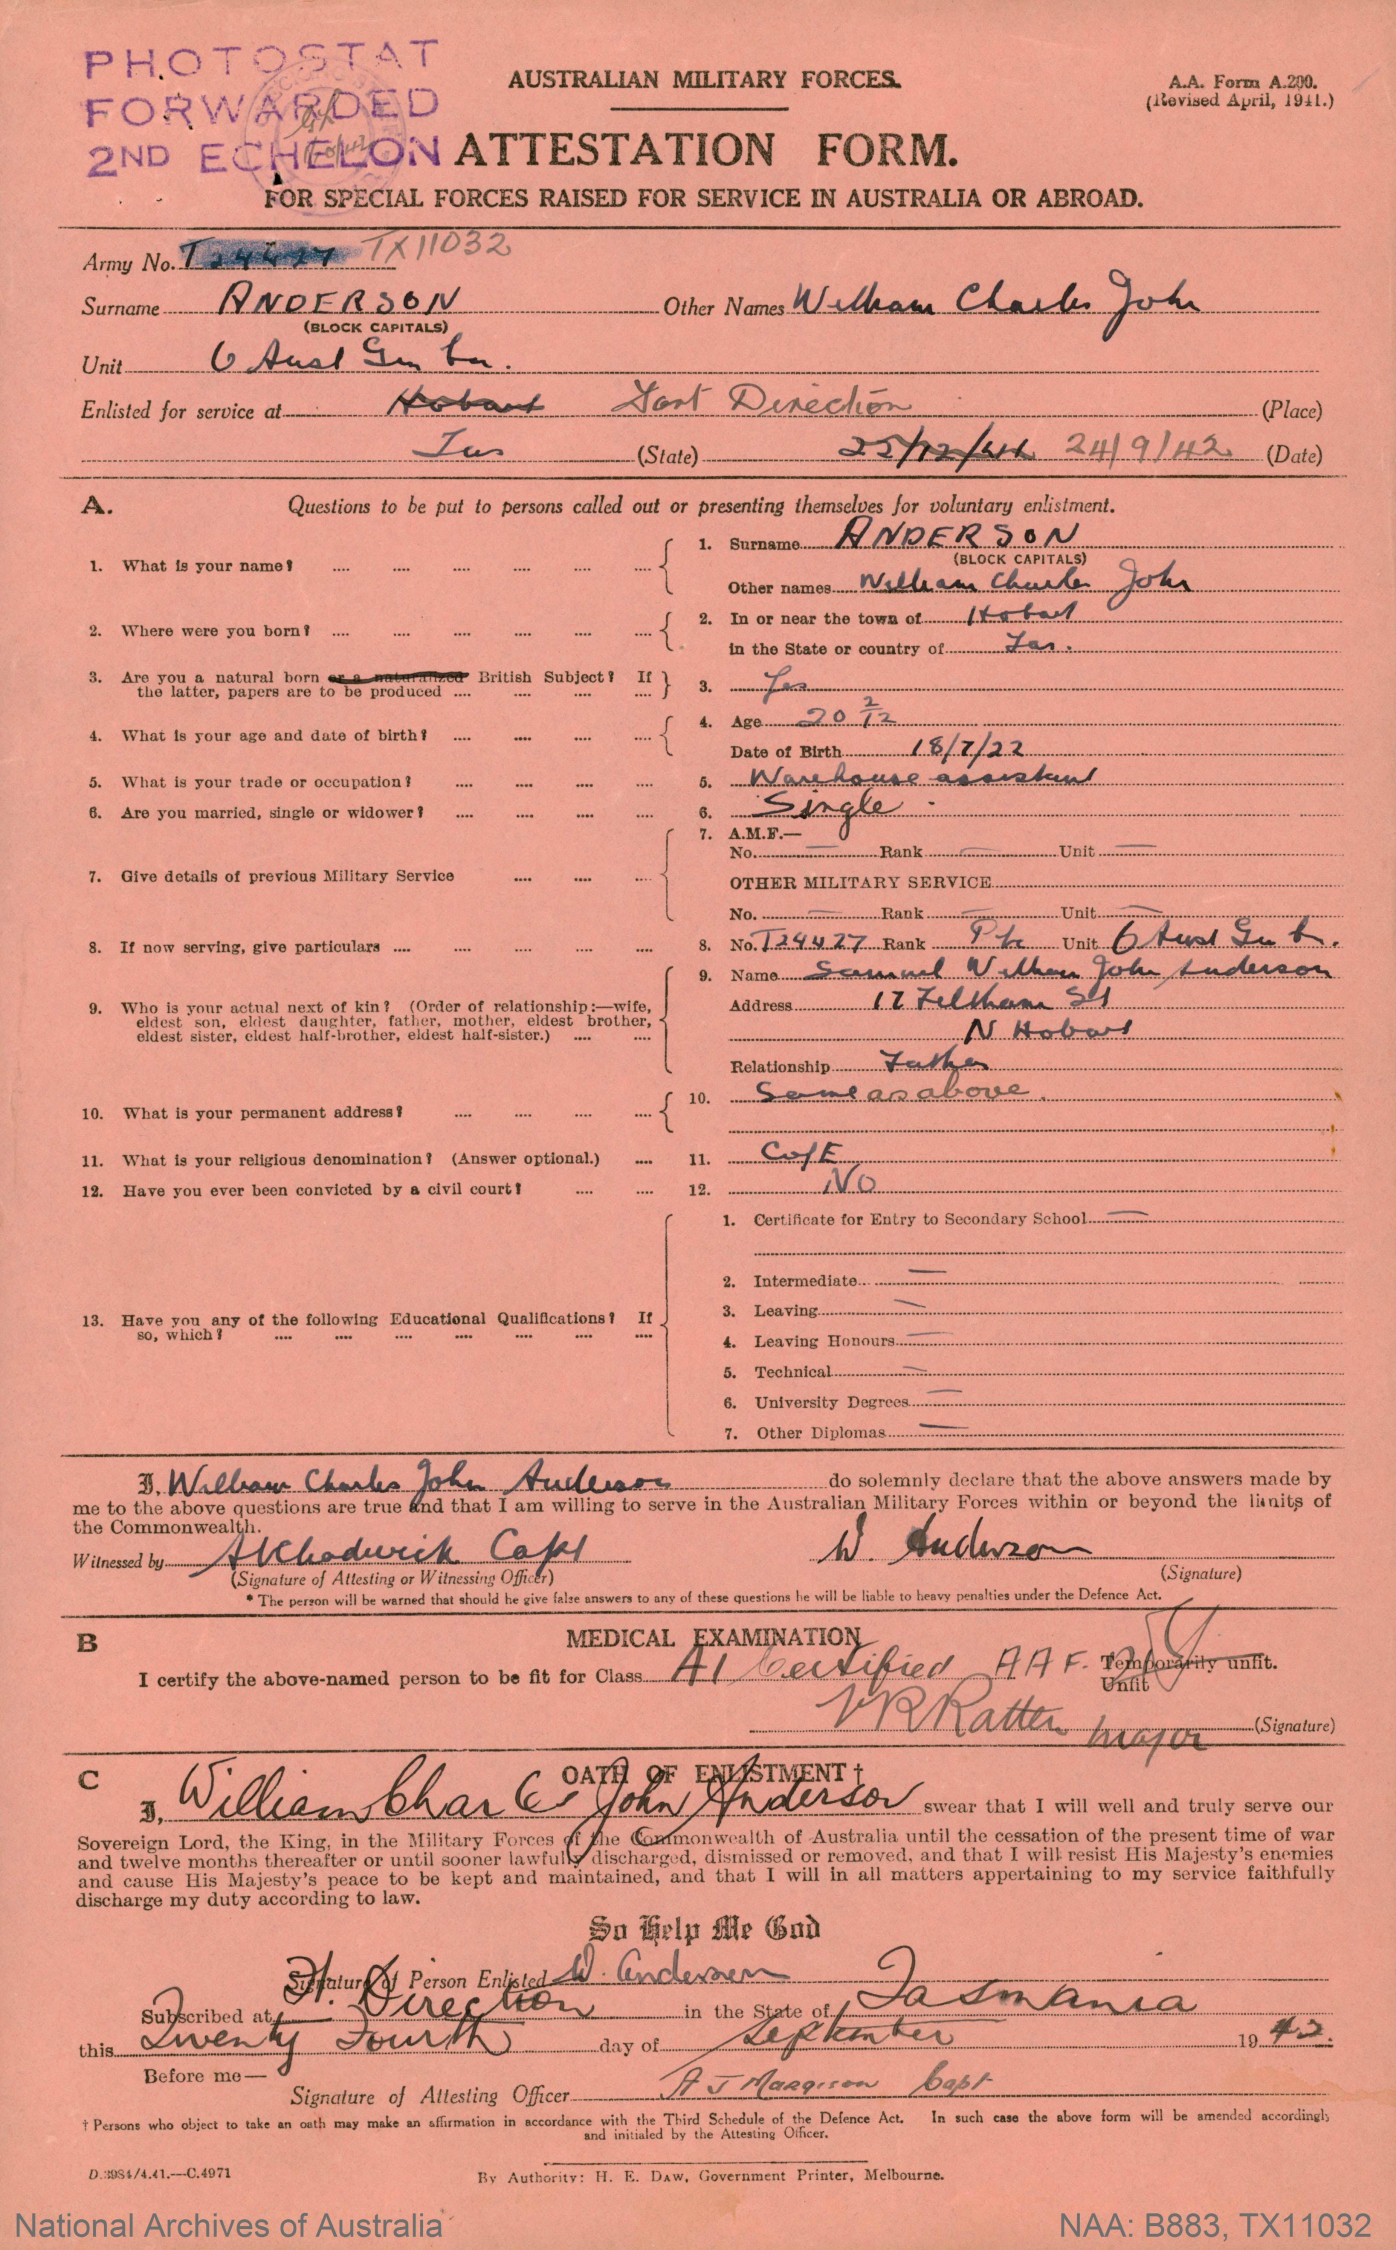 PHOTOSTAT
FORWARDED
2ND ECHELON
AUSTRALIAN MILITARY FORCES.
A.A. Form A.200.
(Revised April, 1941.)
ATTESTATION FORM.
FOR SPECIAL FORCES RAISED FOR SERVICE IN AUSTRALIA OR ABROAD.
Army No. T24427 TX11032
Surname ANDERSON Other Names William Charles John
(BLOCK CAPITALS)
Unit 6 Aust Gn bn.
Enlisted for service at Hobart Fort Direction (Place)
Tas (State) 25/12/41 24/9/42 (Date)
A. Questions to be put to persons called out or presenting themselves for voluntary enlistment.
1. What is your name? .... 1. Surname ANDERSON
(BLOCK CAPITALS)
Other names William Charles John
2. Where were you born? .... 2. In or near the town of Hobart
in the State or country of Tas.
3. Are you a natural born or a naturalized British Subject? If the latter, papers are to be produced .... 3. Yes
4. What is your age and date of birth? .... 4. Age 20 2/12
Date of Birth 18/7/22
5. What is your trade or occupation? .... 5. Warehouse assistant
6. Are you married, single or widower? .... 6. Single
7. Give details of previous Military Service .... 7. A.M.F.—
No. — Rank — Unit —
OTHER MILITARY SERVICE
No. — Rank — Unit —
8. If now serving, give particulars .... 8. No. T24427 Rank Pte Unit 6 Aust Gn bn.
9. Who is your actual next of kin? (Order of relationship:—wife, eldest son, eldest daughter, father, mother, eldest brother, eldest sister, eldest half-brother, eldest half-sister.) .... 9. Name Samuel William John Anderson
Address 17 Feltham St
N Hobart
Relationship Father
10. What is your permanent address? .... 10. Same as above.
11. What is your religious denomination? (Answer optional.) .... 11. C of E
12. Have you ever been convicted by a civil court? .... 12. No
13. Have you any of the following Educational Qualifications? If so, which? ....
1. Certificate for Entry to Secondary School —
2. Intermediate —
3. Leaving —
4. Leaving Honours —
5. Technical —
6. University Degrees —
7. Other Diplomas —
I, William Charles John Anderson do solemnly declare that the above answers made by
me to the above questions are true and that I am willing to serve in the Australian Military Forces within or beyond the limits of
the Commonwealth.
Witnessed by Capt W. Anderson
(Signature of Attesting or Witnessing Officer) (Signature)
* The person will be warned that should he give false answers to any of these questions he will be liable to heavy penalties under the Defence Act.
B MEDICAL EXAMINATION
I certify the above-named person to be fit for Class A1 Certified AAF. Temporarily unfit.
Unfit
VR Ratten Major (Signature)
C OATH OF ENLISTMENT †
I, William Charles John Anderson swear that I will well and truly serve our
Sovereign Lord, the King, in the Military Forces of the Commonwealth of Australia until the cessation of the present time of war
and twelve months thereafter or until sooner lawfully discharged, dismissed or removed, and that I will resist His Majesty's enemies
and cause His Majesty's peace to be kept and maintained, and that I will in all matters appertaining to my service faithfully
discharge my duty according to law.
So Help Me God
Signature of Person Enlisted W. Anderson
Subscribed at Ft. Direction in the State of Tasmania
this Twenty Fourth day of September 1942.
Before me—
Signature of Attesting Officer A J Margison Capt
† Persons who object to take an oath may make an affirmation in accordance with the Third Schedule of the Defence Act. In such case the above form will be amended accordingly
and initialed by the Attesting Officer.
D.3984/4.41.—C.4971
By Authority: H. E. Daw, Government Printer, Melbourne.
National Archives of Australia NAA: B883, TX11032